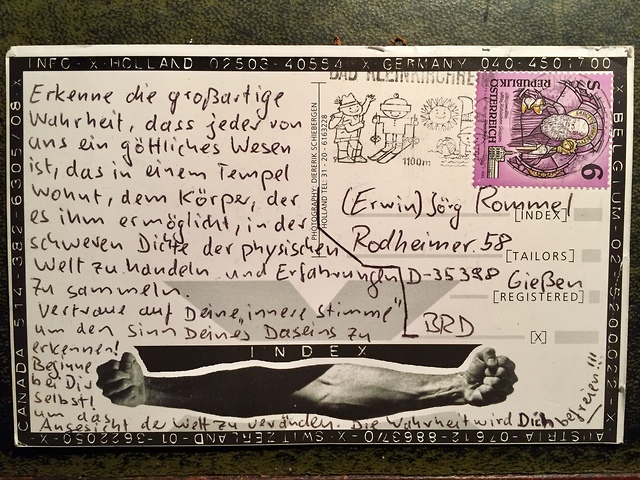 INFO - X - HOLLAND 02503-40554 - X - GERMANY 040-4501700
BELGIUM 02-5200022 - X -
AUSTRIA-07612-88637O - X - SWITZERLAND-01-3622050 - X -
CANADA 514-382-6305/08 - X
Erkenne die großartige
Wahrheit, dass jeder von
uns ein göttliches Wesen
ist, das in einem Tempel
wohnt, dem Körper, der
es ihm ermöglicht, in der
schweren Dichte der physischen
Welt zu handeln und Erfahrungen
zu sammeln.
Vertraue auf Deine "innere Stimme"
um den Sinn Deines Daseins zu
erkennen!
Beginne
bei Dir
selbst!
um das
Angesicht der Welt zu verändern. Die Wahrheit wird Dich befreien!!!
PHOTOGRAPHY: DIERERIK SCHIEBERGEN
HOLLAND TEL: 31-20-6163228
BAD KLEINKIRCHHE
1100m
REPUBLIK
ÖSTERREICH
S
6
(Erwin) Jörg Rommel
[INDEX]
Rodheimer. 58
[TAILORS]
D-35398 Gießen
[REGISTERED]
BRD
[X]
INDEX